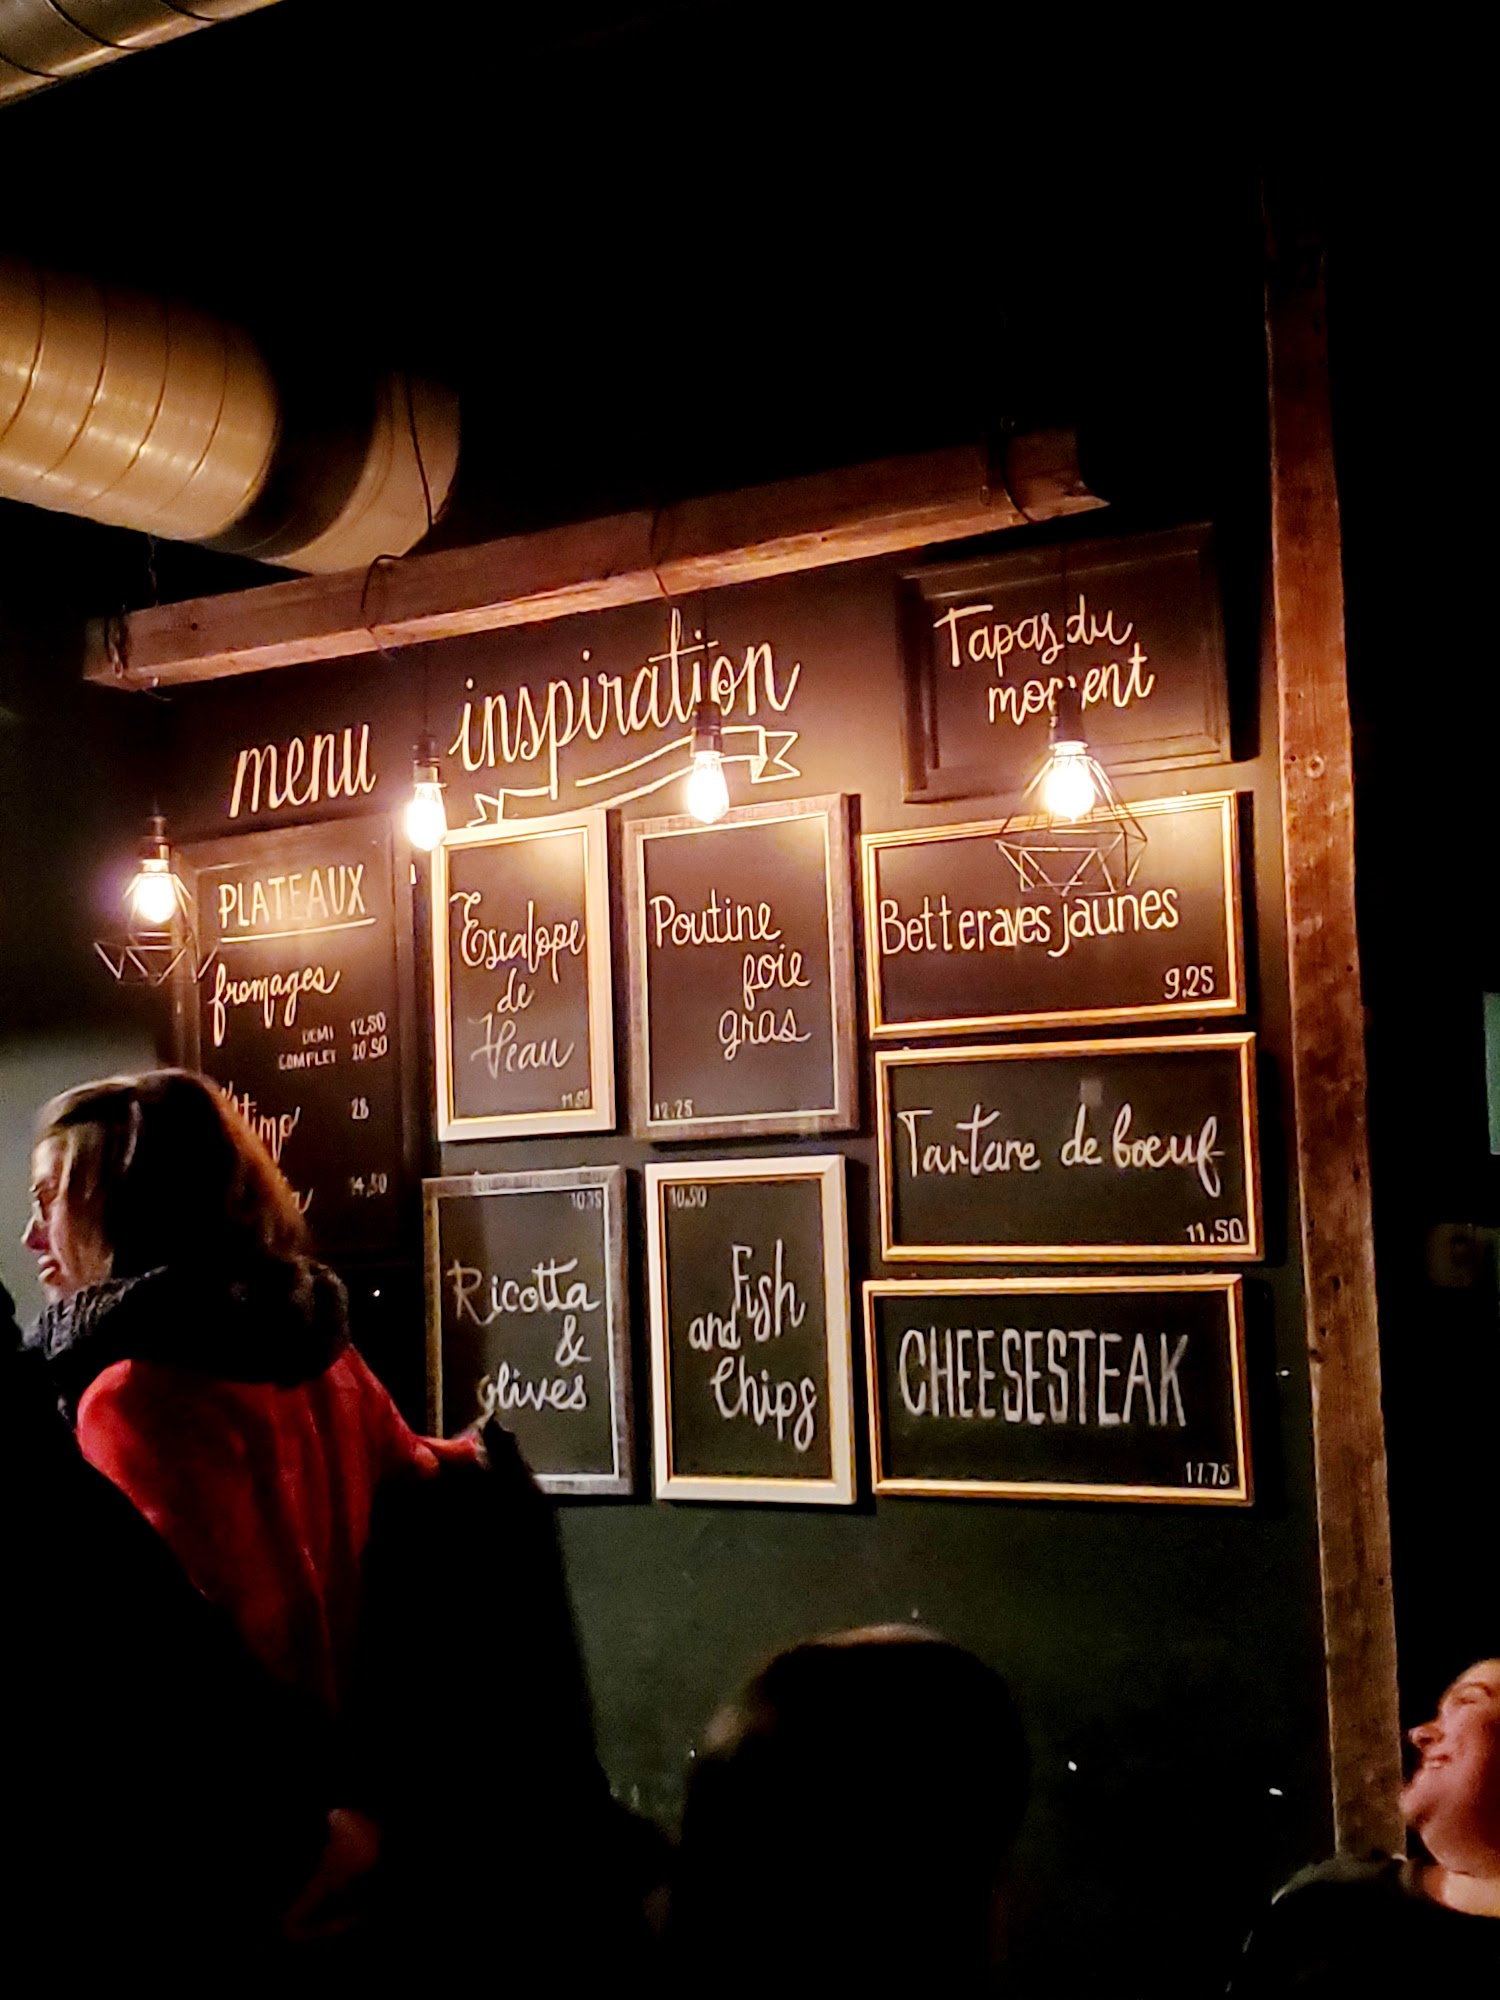 menu
inspiration
Tapas du
moment
PLATEAUX
fromages
DEMI 12,50
COMPLET 20.50
28
14,50
Escalope
de
Veau
11.50
Poutine
foie
gras
12.25
10.75
Ricotta
&
olives
10.50
Fish
and
Chips
Betteraves jaunes
9,25
Tartare de boeuf
11,50
CHEESESTEAK
11.75